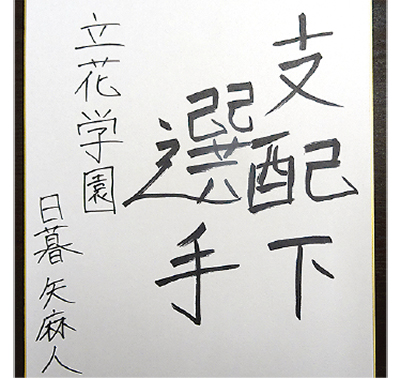 支配下
選手
立花学園
日暮矢麻人